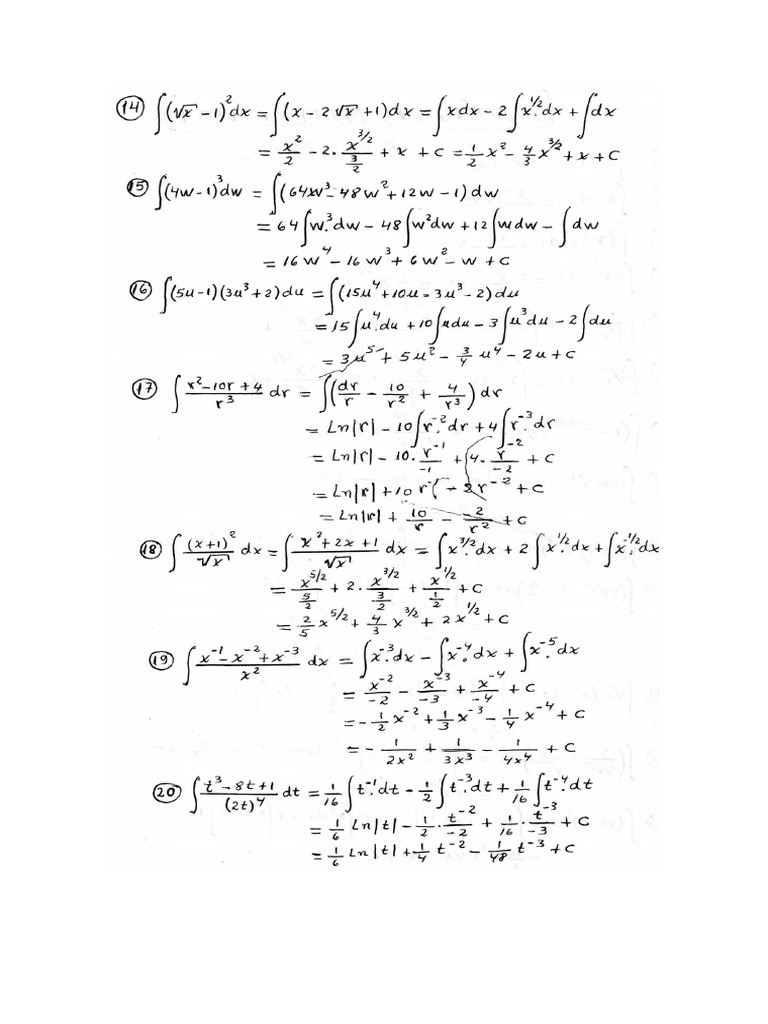 ⑭ ∫(√x − 1)²dx = ∫(x − 2√x + 1)dx = ∫xdx − 2∫x^{1/2}.dx + ∫dx
= x²/2 − 2. x^{3/2}/(3/2) + x + C = 1/2 x² − 4/3 x^{3/2} + x + C
⑮ ∫(4w−1)³dw = ∫(64w³−48w²+12w−1)dw
= 64∫w³.dw − 48∫w²dw + 12∫wdw − ∫dw
= 16w⁴ − 16w³ + 6w² − w + C
⑯ ∫(5u−1)(3u³+2)du = ∫(15u⁴+10u−3u³−2)du
= 15∫u⁴.du + 10∫udu − 3∫u³du − 2∫du
= 3u⁵ + 5u² − 3/4 u⁴ − 2u + C
⑰ ∫ (r²−10r+4)/r³ dr = ∫(dr/r − 10/r² + 4/r³)dr
= Ln|r| − 10∫r⁻².dr + 4∫r⁻³.dr
= Ln|r| − 10. r⁻¹/−1 + 4. r⁻²/−2 + C
= Ln|r| + 10r⁻¹ − 2r⁻² + C
= Ln|r| + 10/r − 2/r² + C
⑱ ∫ (x+1)²/√x dx = ∫ (x²+2x+1)/√x dx = ∫x^{3/2}.dx + 2∫x^{1/2}.dx + ∫x^{−1/2}.dx
= x^{5/2}/(5/2) + 2. x^{3/2}/(3/2) + x^{1/2}/(1/2) + C
= 2/5 x^{5/2} + 4/3 x^{3/2} + 2x^{1/2} + C
⑲ ∫ (x⁻¹−x⁻²+x⁻³)/x² dx = ∫x⁻³.dx − ∫x⁻⁴.dx + ∫x⁻⁵.dx
= x⁻²/−2 − x⁻³/−3 + x⁻⁴/−4 + C
= −1/2 x⁻² + 1/3 x⁻³ − 1/4 x⁻⁴ + C
= − 1/2x² + 1/3x³ − 1/4x⁴ + C
⑳ ∫ (t³−8t+1)/(2t)⁴ dt = 1/16 ∫t⁻¹.dt − 1/2 ∫t⁻³.dt + 1/16 ∫t⁻⁴.dt
= 1/6 Ln|t| − 1/2 . t⁻²/−2 + 1/16 . t⁻³/−3 + C
= 1/6 Ln|t| + 1/4 t⁻² − 1/48 t⁻³ + C